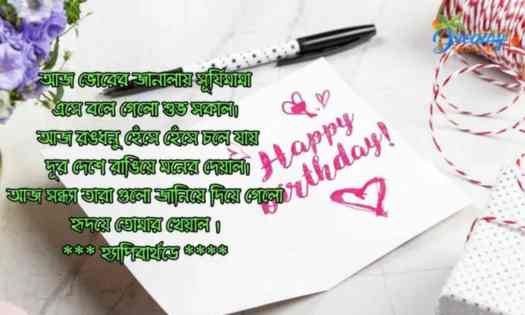 আজ ভোরের জানালায় সূর্যিমামা
এসে বলে গেলো শুভ সকাল।
আজ রঙধনু হেঁসে হেঁসে চলে যায়
দূর দেশে রাঙিয়ে মনের দেয়াল।
আজ সন্ধ্যা তারা গুলো জানিয়ে দিয়ে গেলো
হৃদয়ে তোমার খেয়াল ।
*** হ্যাপিবার্থডে ****
Happy
Birthday!